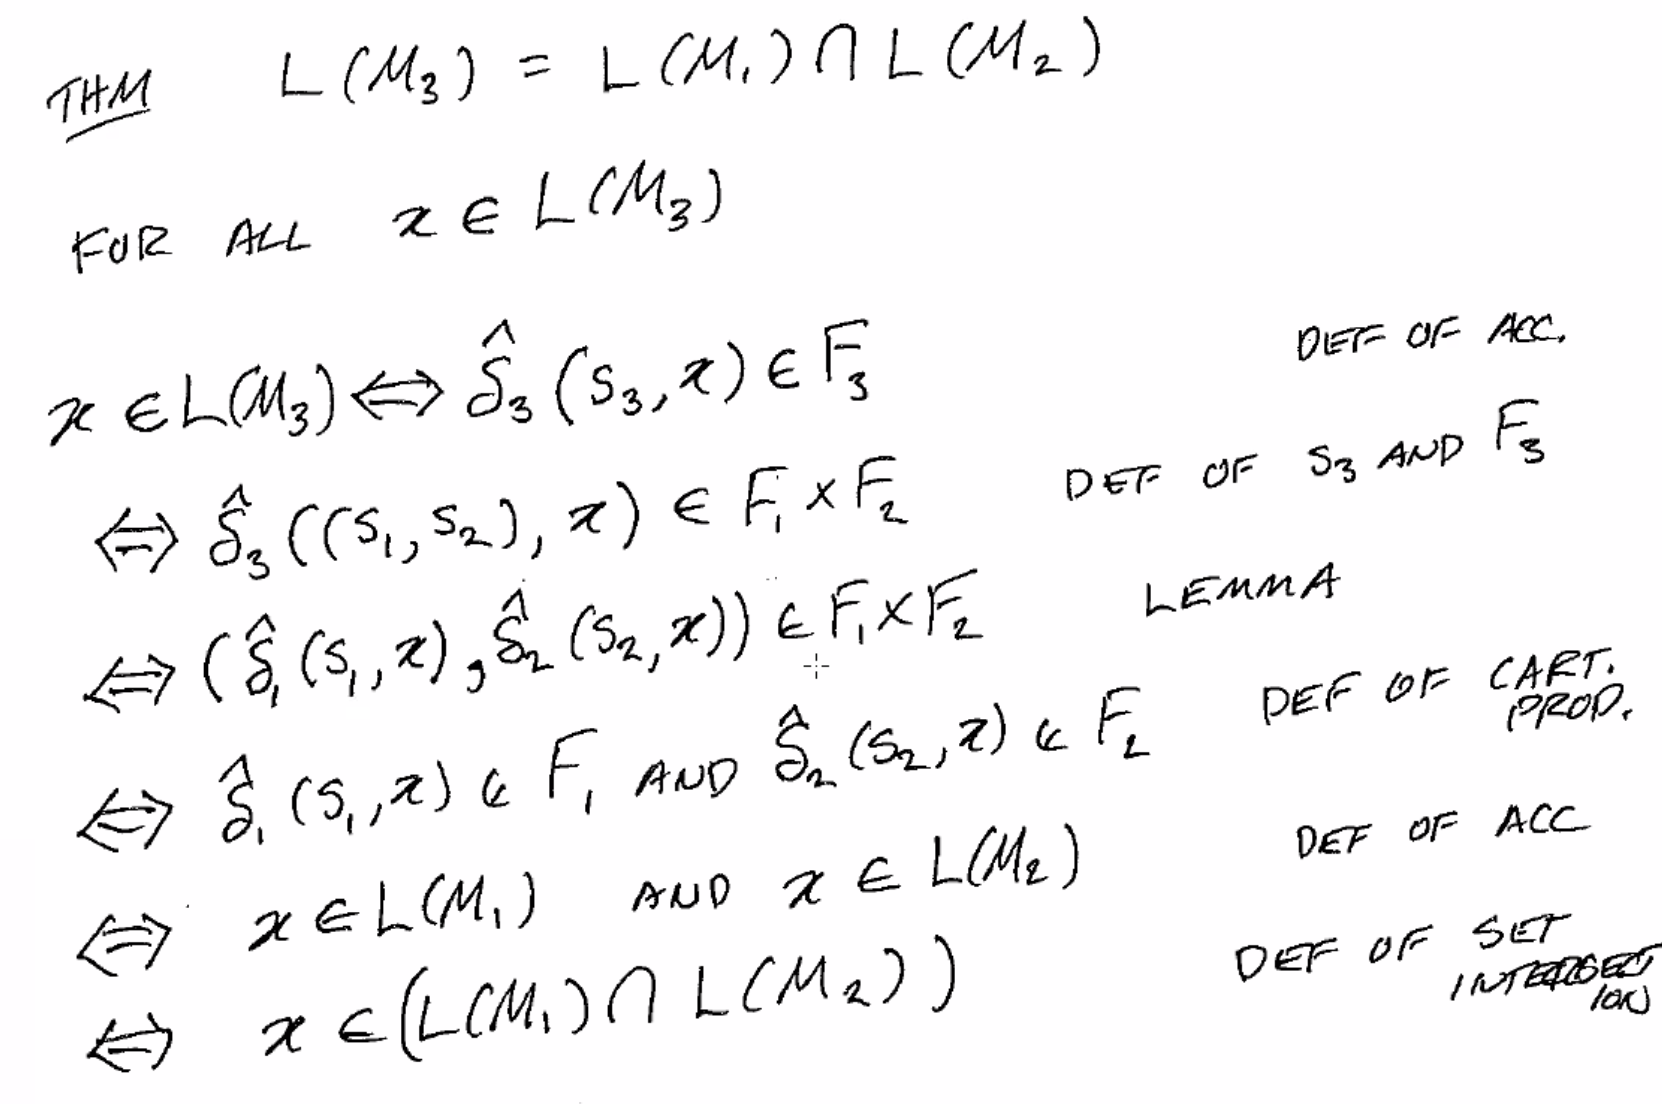 THM L(M₃) = L(M₁) ∩ L(M₂)
FOR ALL x ∈ L(M₃)
x ∈ L(M₃) ⇔ δ̂₃(s₃, x) ∈ F₃ DEF OF ACC.
⇔ δ̂₃((s₁, s₂), x) ∈ F₁ × F₂ DEF OF s₃ AND F₃
⇔ (δ̂₁(s₁, x), δ̂₂(s₂, x)) ∈ F₁ × F₂ LEMMA
⇔ δ̂₁(s₁, x) ∈ F₁ AND δ̂₂(s₂, x) ∈ F₂ DEF OF CART. PROD.
⇔ x ∈ L(M₁) AND x ∈ L(M₂) DEF OF ACC
⇔ x ∈ (L(M₁) ∩ L(M₂)) DEF OF SET INTERSECTION